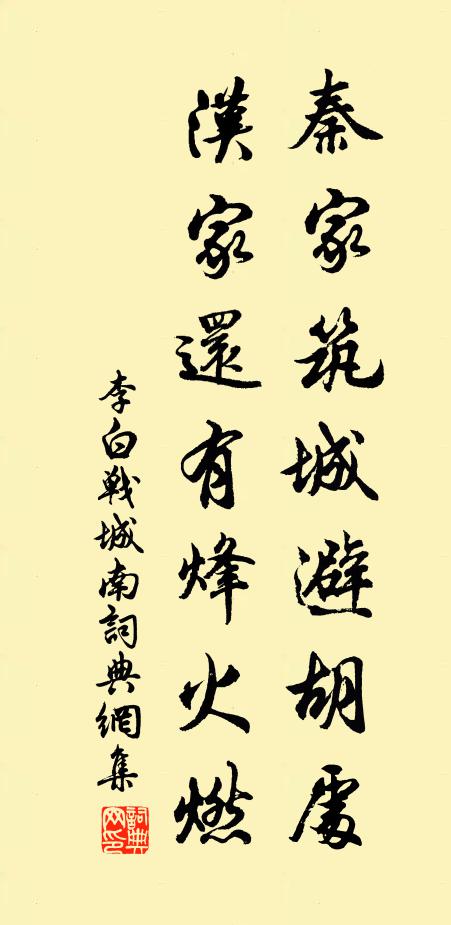 秦家筑城避胡處
漢家還有烽火燃
李白戰城南詞典網集
詞典
网印